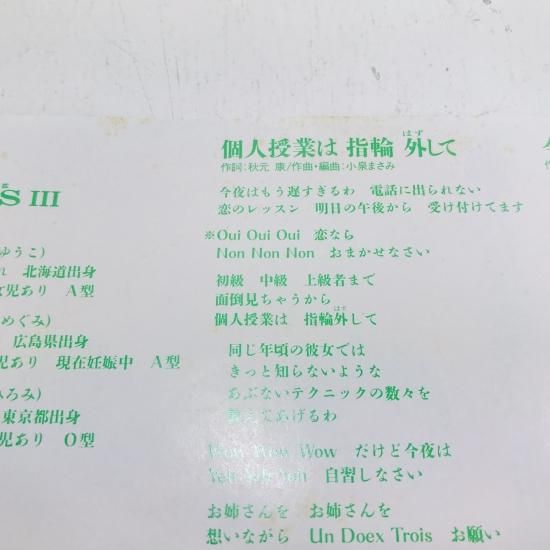 S III
ゆうこ）
れ 北海道出身
児あり A型
めぐみ）
広島県出身
児あり 現在妊娠中 A型
ひろみ）
東京都出身
児あり O型
個人授業は 指輪 外して
はず
作詞：秋元 康/作曲・編曲：小泉まさみ
今夜はもう遅すぎるわ 電話に出られない
恋のレッスン 明日の午後から 受け付けてます
※Oui Oui Oui 恋なら
Non Non Non おまかせなさい
初級 中級 上級者まで
面倒見ちゃうから
個人授業は 指輪外して
はず
同じ年頃の彼女では
きっと知らないような
あぶないテクニックの数々を
教えてあげるわ
Wow Wow Wow だけど今夜は
Yeh Yeh Yeh 自習しなさい
お姉さんを お姉さんを
想いながら Un Doex Trois お願い